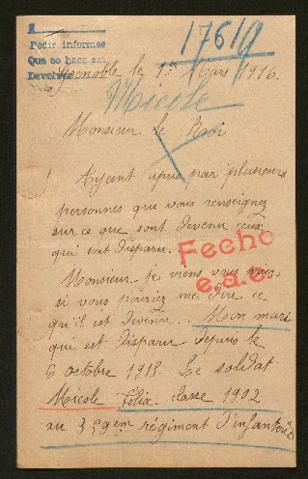 A
Pedir informes
Que se hace así
Devolver
17619
Grenoble le 1er Mars 1916.
Micole
Monsieur le Roi
Ayant apris par plusieurs
personnes que vous renseignez
sur ce que sont devenu ceux
qui sont disparu.
Fecho
e.a.e.
Monsieur je viens vous
si vous pouriez me dire ce
qu'il est devenu. Mon mari
qui est disparu depuis le
6 octobre 1915. Le soldat
Micole Félix classe 1902
au régiment d'infanterie